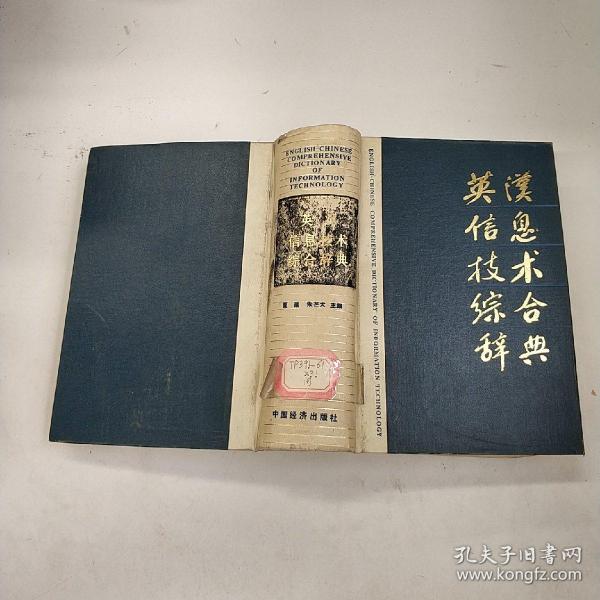 ENGLISH-CHINESE
COMPREHENSIVE
DICTIONARY
OF
INFORMATION
TECHNOLOGY
英
信息技术
综合辞典
朱芒大 主编
TP391-61
中国经济出版社
ENGLISH-CHINESE COMPREHENSIVE DICTIONARY OF INFORMATION TECHNOLOGY
英漢
信息
技术
综合
辞典
孔夫子旧书网
www.kongfz.com